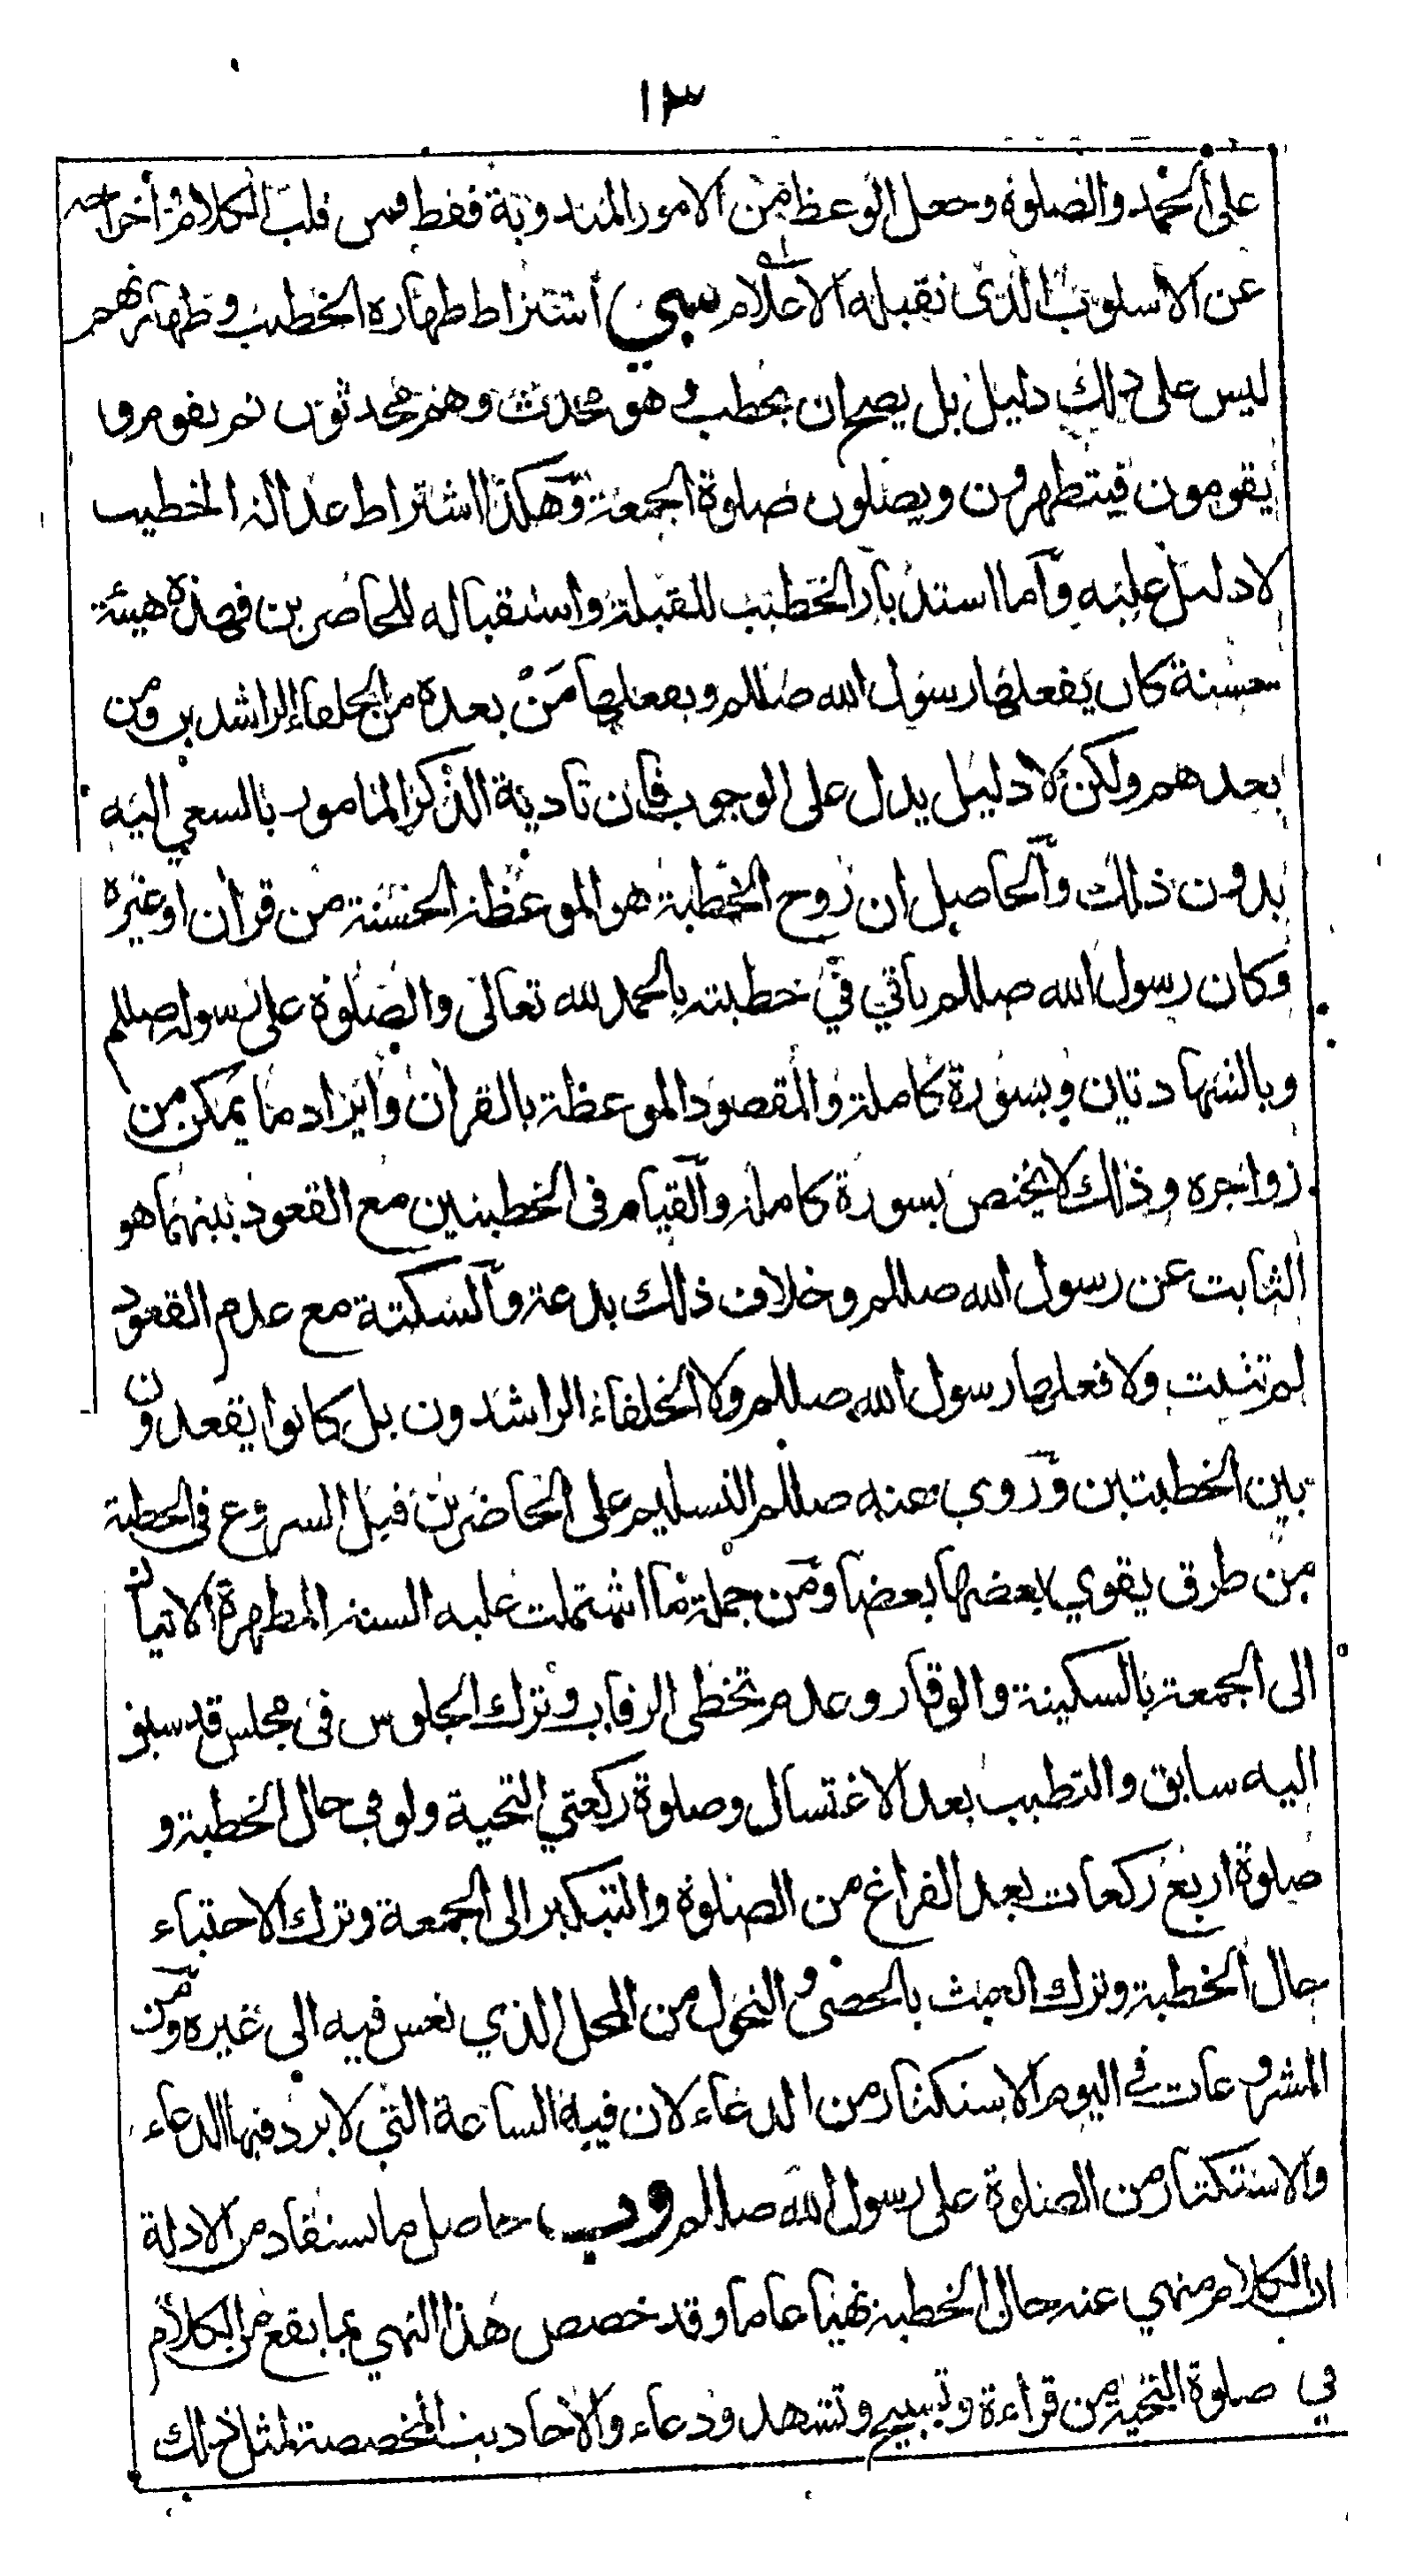 ١٣
على الحمد والصلوة وجعل الوعظ من الامور المندوبة فقط فمن قلب الكلام واخراجه
عن الاسلوب الذى تقبله الاعلام اشتراط طهارة الخطيب وطهارتهم
ليس على ذلك دليل بل يصح ان يخطب و هو محدث وهم محدثون ثم يقوم و
يقومون فيتطهرون ويصلون صلوة الجمعة وهكذا اشتراط عدالة الخطيب
لا دليل عليه واما استدبار الخطيب للقبلة واستقباله للحاضرين فهذه هيئة
حسنة كان يفعلها رسول الله صللم ويفعلها من بعده من الخلفاء الراشدين ومن
بعدهم ولكن لا دليل يدل على الوجوب فان تادية الذكر المامور بالسعي اليه
بدون ذلك والحاصل ان روح الخطبة هو الموعظة الحسنة من قران او غيره
وكان رسول الله صللم ياتي في خطبته بالحمد لله تعالى والصلوة على رسوله صللم
وبالشهادتين وبسورة كاملة والمقصود الموعظة بالقران وايراد ما يمكن من
زواجره وذلك لا يختص بسورة كاملة والقيام فى الخطبتين مع القعود بينهما هو
الثابت عن رسول الله صللم وخلاف ذلك بدعة والسكتة مع عدم القعود
لم تثبت ولا فعلها رسول الله صللم ولا الخلفاء الراشدون بل كانوا يقعدون
بين الخطبتين وروي عنه صللم التسليم على الحاضرين قبل الشروع فى الخطبة
من طرق يقوي بعضها بعضا ومن جملة ما اشتملت عليه السنة المطهرة الاتيان
الى الجمعة بالسكينة والوقار وعدم تخطى الرقاب وترك الجلوس فى مجلس قد سبق
اليه سابق والتطيب بعد الاغتسال وصلوة ركعتي التحية ولو في حال الخطبة و
صلوة اربع ركعات بعد الفراغ من الصلوة والتبكير الى الجمعة وترك الاحتباء
حال الخطبة وترك العبث بالحصى و التحول من المحل الذي نعس فيه الى غيره ومن
المشروعات في اليوم الاستكثار من الدعاء لان فيه الساعة التي لا يرد فيها الدعاء
والاستكثار من الصلوة على رسول الله صللم حاصل ما يستفاد من الادلة
ان الكلام منهي عنه حال الخطبة نهيا عاما وقد خصص هذا النهي بما يقع من الكلام
في صلوة التحية من قراءة وتسبيح وتشهد ودعاء والاحاديث المخصصة لمثل ذلك